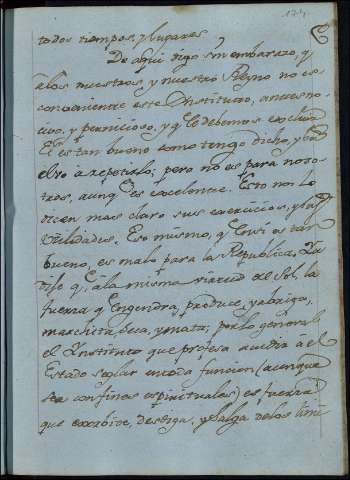 174.
todos tiempos, y lugares.
De aqui digo sin embarazo, q
â los nuestros, y nuestro Reyno no es
conveniente este Instituto, antes no-
civo, y pernicioso, y q le debemos excluir.
El es tan bueno como tengo dicho, y
buelvo à repetirlo; pero no es para noso-
tros, aunq es excelente. Esto nos lo
dicen mas claro sus exercicios, y las
utilidades. Eso mismo, q en si es tan
bueno, es malo para la Republica. Ya
dije q, â la misma virtud del Sol, la
fuerza q engendra, produce, y abriga,
marchita, seca, y mata; por lo general
el Instituto que profesa acudir a el
Estado seglar en toda funcion (aunque
sea con fines espirituales) es fuerza
que exorbite, desdiga, y salga de los limi